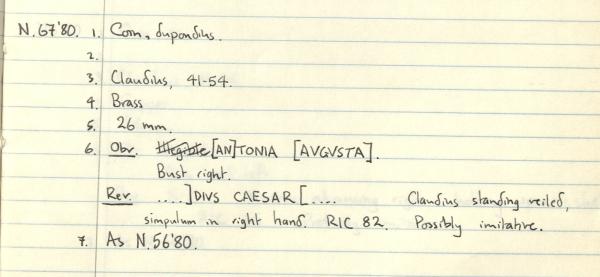 N.67'80. 1. Coin, dupondius.
2.
3. Claudius, 41-54.
4. Brass
5. 26 mm.
6. Obv. Illegible [AN]TONIA [AVGVSTA].
Bust right.
Rev. ....]DIVS CAESAR[.... Claudius standing veiled,
simpulum in right hand. RIC 82. Possibly imitative.
7. As N.56'80.